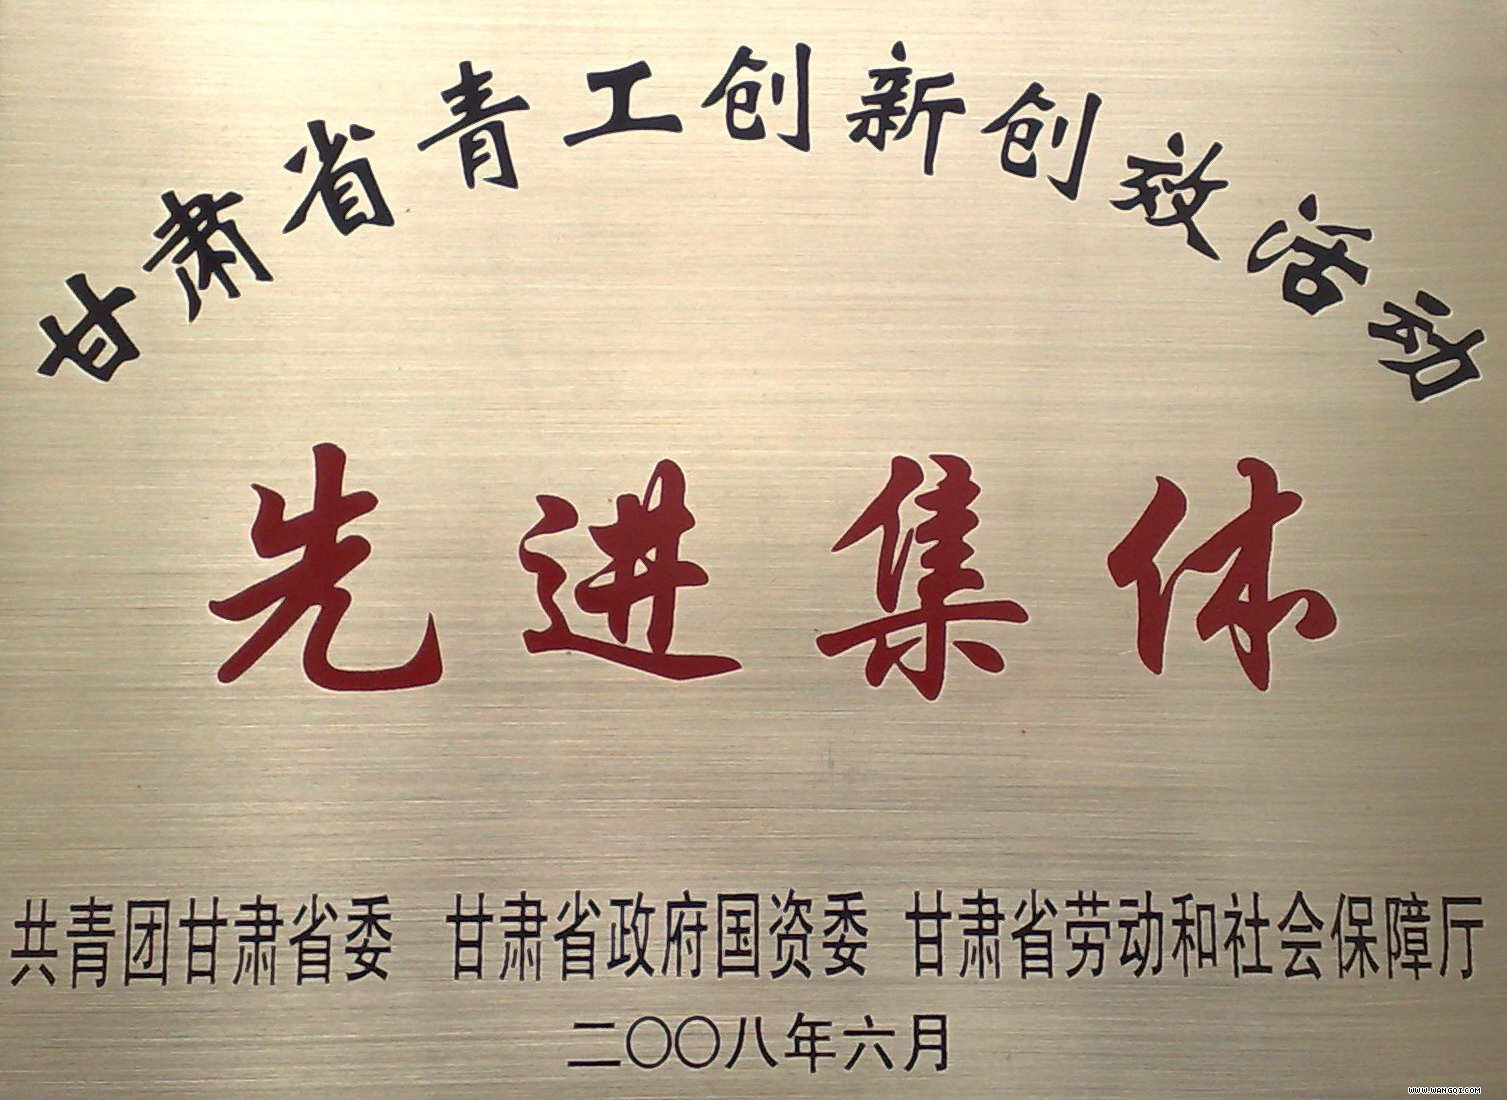 甘肃省青工创新创效活动
先进集体
共青团甘肃省委 甘肃省政府国资委 甘肃省劳动和社会保障厅
二〇〇八年六月
WWW.WANGQI.COM